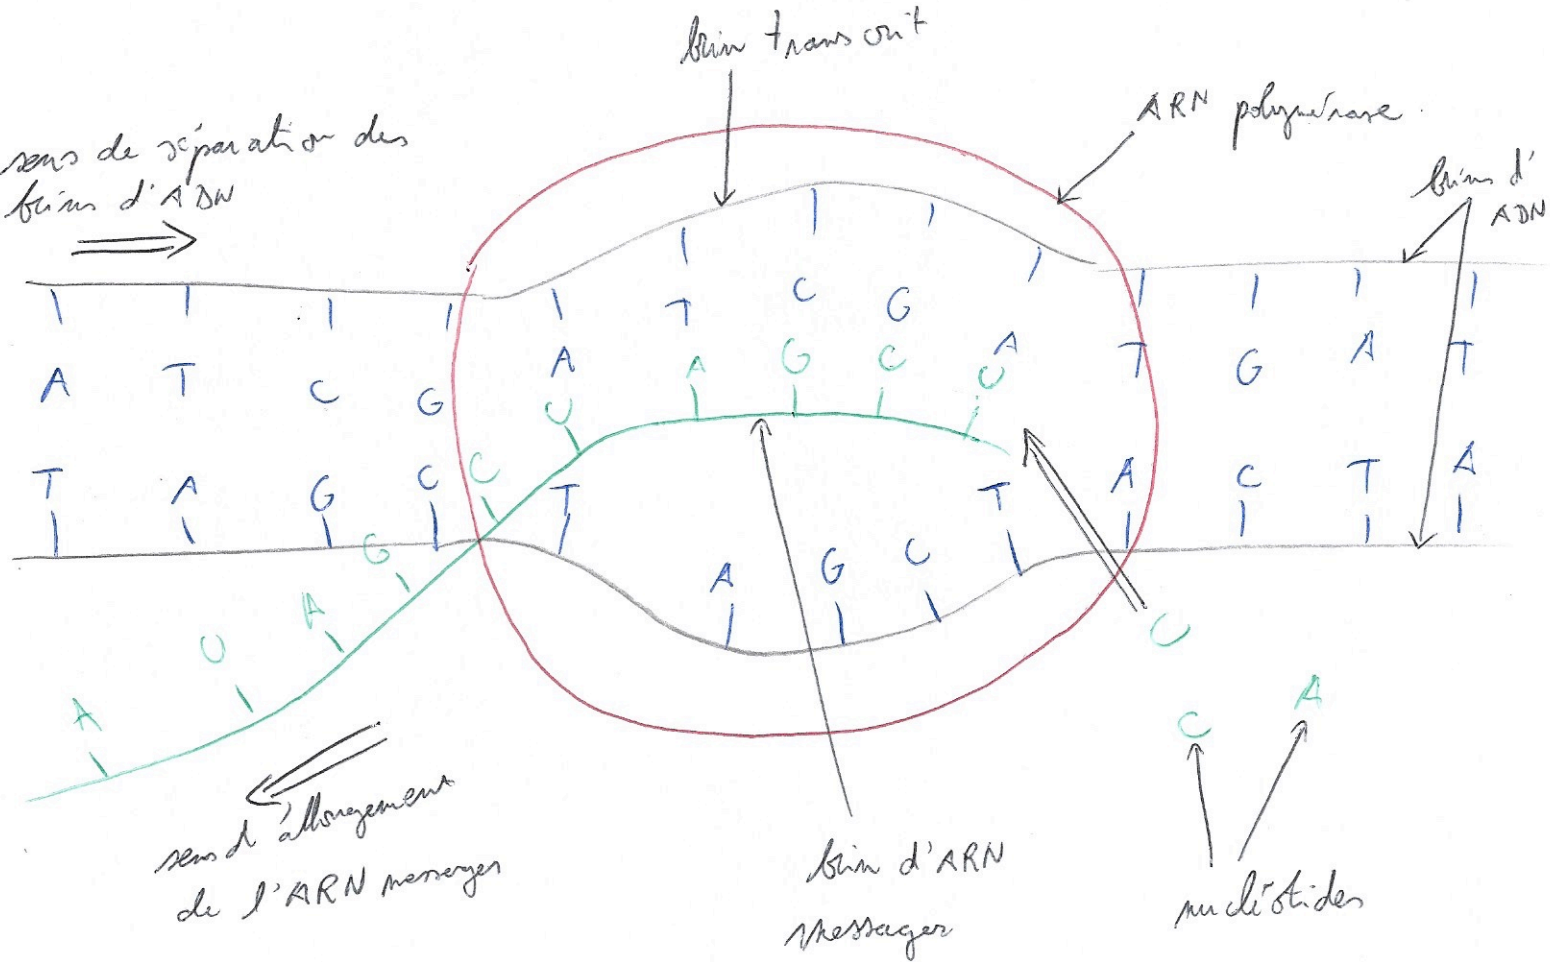 brin transcrit
ARN polymérase.
sens de séparation des
brins d'ADN
brins d'
ADN
A T C G A T C G A T G A T
U A G C U
C
G
A
U
A
T A G C T A G C T A C T A
U
C A
sens d'allongement
de l'ARN messager
brin d'ARN
messager
nucléotides